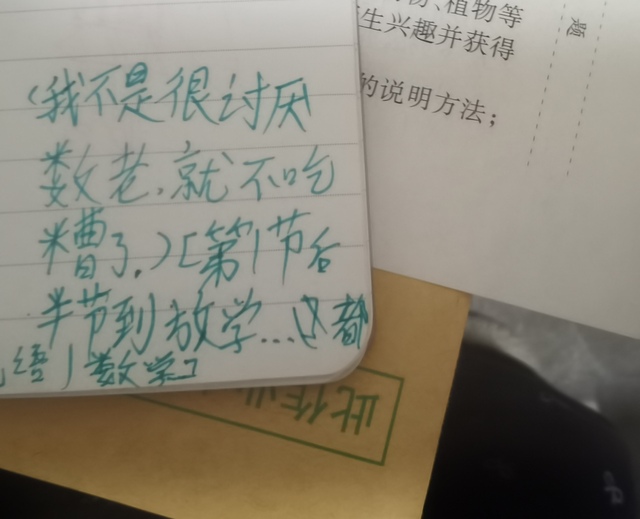 (我不是很讨厌
数老,就不吃
糟了.)[第1节后
半节到放学...这都
语)数学]
物、植物等
生兴趣并获得
的说明方法;
此作业